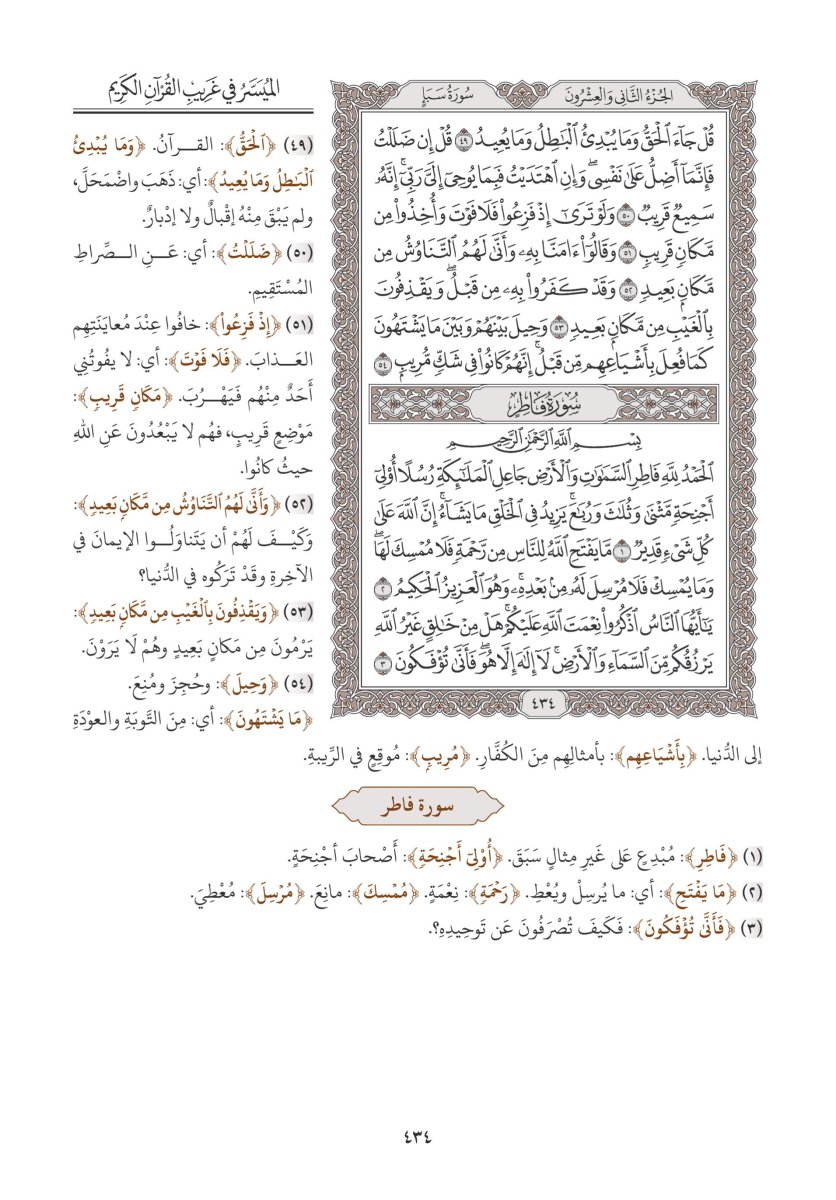 الجُزْءُ الثَّانِي وَالعِشْرُونَ
سُورَةُ سَبَإٍ
قُلْ جَآءَ ٱلْحَقُّ وَمَا يُبْدِئُ ٱلْبَٰطِلُ وَمَا يُعِيدُ ٤٩ قُلْ إِن ضَلَلْتُ
فَإِنَّمَآ أَضِلُّ عَلَىٰ نَفْسِىۖ وَإِنِ ٱهْتَدَيْتُ فَبِمَا يُوحِىٓ إِلَىَّ رَبِّىٓۚ إِنَّهُۥ
سَمِيعٌ قَرِيبٌ ٥٠ وَلَوْ تَرَىٰٓ إِذْ فَزِعُوا۟ فَلَا فَوْتَ وَأُخِذُوا۟ مِن
مَّكَانٍ قَرِيبٍ ٥١ وَقَالُوٓا۟ ءَامَنَّا بِهِۦ وَأَنَّىٰ لَهُمُ ٱلتَّنَاوُشُ مِن
مَّكَانٍۭ بَعِيدٍ ٥٢ وَقَدْ كَفَرُوا۟ بِهِۦ مِن قَبْلُۖ وَيَقْذِفُونَ
بِٱلْغَيْبِ مِن مَّكَانٍۭ بَعِيدٍ ٥٣ وَحِيلَ بَيْنَهُمْ وَبَيْنَ مَا يَشْتَهُونَ
كَمَا فُعِلَ بِأَشْيَاعِهِم مِّن قَبْلُۚ إِنَّهُمْ كَانُوا۟ فِى شَكٍّ مُّرِيبٍۭ ٥٤
سُورَةُ فَاطِرٍ
بِسْمِ ٱللَّهِ ٱلرَّحْمَٰنِ ٱلرَّحِيمِ
ٱلْحَمْدُ لِلَّهِ فَاطِرِ ٱلسَّمَٰوَٰتِ وَٱلْأَرْضِ جَاعِلِ ٱلْمَلَٰٓئِكَةِ رُسُلًا أُو۟لِىٓ
أَجْنِحَةٍ مَّثْنَىٰ وَثُلَٰثَ وَرُبَٰعَۚ يَزِيدُ فِى ٱلْخَلْقِ مَا يَشَآءُۚ إِنَّ ٱللَّهَ عَلَىٰ
كُلِّ شَىْءٍ قَدِيرٌ ١ مَّا يَفْتَحِ ٱللَّهُ لِلنَّاسِ مِن رَّحْمَةٍ فَلَا مُمْسِكَ لَهَاۖ
وَمَا يُمْسِكْ فَلَا مُرْسِلَ لَهُۥ مِنۢ بَعْدِهِۦۚ وَهُوَ ٱلْعَزِيزُ ٱلْحَكِيمُ ٢
يَٰٓأَيُّهَا ٱلنَّاسُ ٱذْكُرُوا۟ نِعْمَتَ ٱللَّهِ عَلَيْكُمْۚ هَلْ مِنْ خَٰلِقٍ غَيْرُ ٱللَّهِ
يَرْزُقُكُم مِّنَ ٱلسَّمَآءِ وَٱلْأَرْضِۚ لَآ إِلَٰهَ إِلَّا هُوَۖ فَأَنَّىٰ تُؤْفَكُونَ ٣
٤٣٤
المُيَسَّرُ في غَرِيبِ القُرْآنِ الكَرِيمِ
(٤٩) ﴿ٱلْحَقُّ﴾: القـرآنُ. ﴿وَمَا يُبْدِئُ
ٱلْبَٰطِلُ وَمَا يُعِيدُ﴾: أي: ذَهَبَ واضْمَحَلَّ،
ولم يَبْقَ مِنْهُ إقْبالٌ ولا إدْبارٌ.
(٥٠) ﴿ضَلَلْتُ﴾: أي: عَـنِ الـصِّراطِ
المُسْتَقِيمِ.
(٥١) ﴿إِذْ فَزِعُوا۟﴾: خافُوا عِنْدَ مُعايَنَتِهِم
العَـذابَ. ﴿فَلَا فَوْتَ﴾: أي: لا يفُوتُنِي
أَحَدٌ مِنْهُم فَيَهْـرُبَ. ﴿مَكَانٍ قَرِيبٍ﴾:
مَوْضِعٍ قَرِيبٍ، فهُم لا يَبْعُدُونَ عَنِ اللهِ
حيثُ كانُوا.
(٥٢) ﴿وَأَنَّىٰ لَهُمُ ٱلتَّنَاوُشُ مِن مَّكَانٍۭ بَعِيدٍ﴾:
وَكَيْـفَ لَهُمْ أن يَتَناوَلُـوا الإيمانَ في
الآخِرةِ وقَدْ تَرَكُوه في الدُّنيا؟
(٥٣) ﴿وَيَقْذِفُونَ بِٱلْغَيْبِ مِن مَّكَانٍۭ بَعِيدٍ﴾:
يَرْمُونَ مِن مَكانٍ بَعِيدٍ وهُمْ لا يَرَوْنَ.
(٥٤) ﴿وَحِيلَ﴾: وحُجِزَ ومُنِعَ.
﴿مَا يَشْتَهُونَ﴾: أي: مِنَ التَّوبَةِ والعوْدَةِ
إلى الدُّنيا. ﴿بِأَشْيَاعِهِم﴾: بأمثالِهِم مِنَ الكُفَّارِ. ﴿مُرِيبٍۭ﴾: مُوقِعٍ في الرِّيبةِ.
سورة فاطر
(١) ﴿فَاطِرِ﴾: مُبْدِعِ عَلى غَيرِ مِثالٍ سَبَقَ. ﴿أُو۟لِىٓ أَجْنِحَةٍ﴾: أَصْحابَ أجْنِحَةٍ.
(٢) ﴿مَا يَفْتَحِ﴾: أي: ما يُرسِلْ ويُعْطِ. ﴿رَحْمَةٍ﴾: نِعْمَةٍ. ﴿مُمْسِكَ﴾: مانِعَ. ﴿مُرْسِلَ﴾: مُعْطِيَ.
(٣) ﴿فَأَنَّىٰ تُؤْفَكُونَ﴾: فَكَيفَ تُصْرَفُونَ عَن تَوحِيدِهِ؟.
٤٣٤